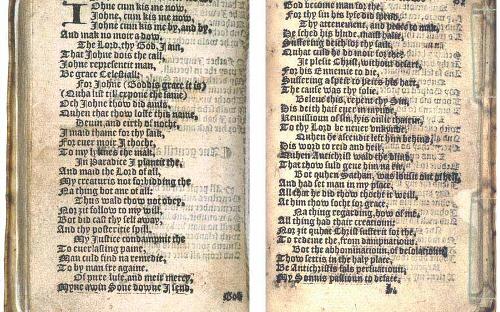 IOhne cum kis me now,
Johne, cum kis me now,
Johne cum kis me by and by,
And mak no moir adow,
The Lord, thy God, I am,
That Johne dois the call,
Johne representit man,
Be grace Celestiall:
For Johne Goddis grace it is)
(Quha list till expone the same)
Och Johne thow did amis,
Quhen that thow loste this name,
Hevin, and eirth of nocht,
I maid thame for thy saik,
For ever moir I thocht,
To my lyknes the mak,
In Paradice I plantit the,
And maid the Lord of all,
My creaturis not forbidding the
Na thing bot ane of all:
Thus wald thow not obey,
Nor zit follow to my will,
Bot did cast thy self away,
And thy posteritie spill,
My Justice condampnit the
To everlasting paine,
Man culd find na remedie,
To by man fre againe.
O pure lufe, and meir mercy,
Myne awin Sone downe I send,
God
God become man for the,
For thy sin his lyfe did spend,
Thy attonement, and peace to mak,
He sched his blude, maist halie,
Suffering deith for thy saik,
Quhat culd he do moir for the?
It plesit Christ, without desart,
For his Ennemie to die,
Suffering a speir to peirs his hart,
The cause was thy folie,
Beleue this, repent thy Sin,
His deith hait ever in mynde,
Remissioun of sin, lyis onlie thairin,
To thy Lord be never unkynde,
Quhen he ascendit left him behind,
His word to reid and heir,
Quhen Antechrist wald the blind,
That thow suld geue him na eir,
Bot quhen Sathan, was lousit out of hell,
And had set man in my place,
All that he did thow thocht it weill,
At him thow socht for grace,
Na thing regarding, how of me,
All thing had thair creatioun:
Nor zit quhat Christ sufferit for the,
To redeine the, from dampnatioun.
Bot the abhominatioun, of desolatioun
Thow settis in the haly place,
Be Antichristis fals persuasioun,
My Sonnis passioun to deface,